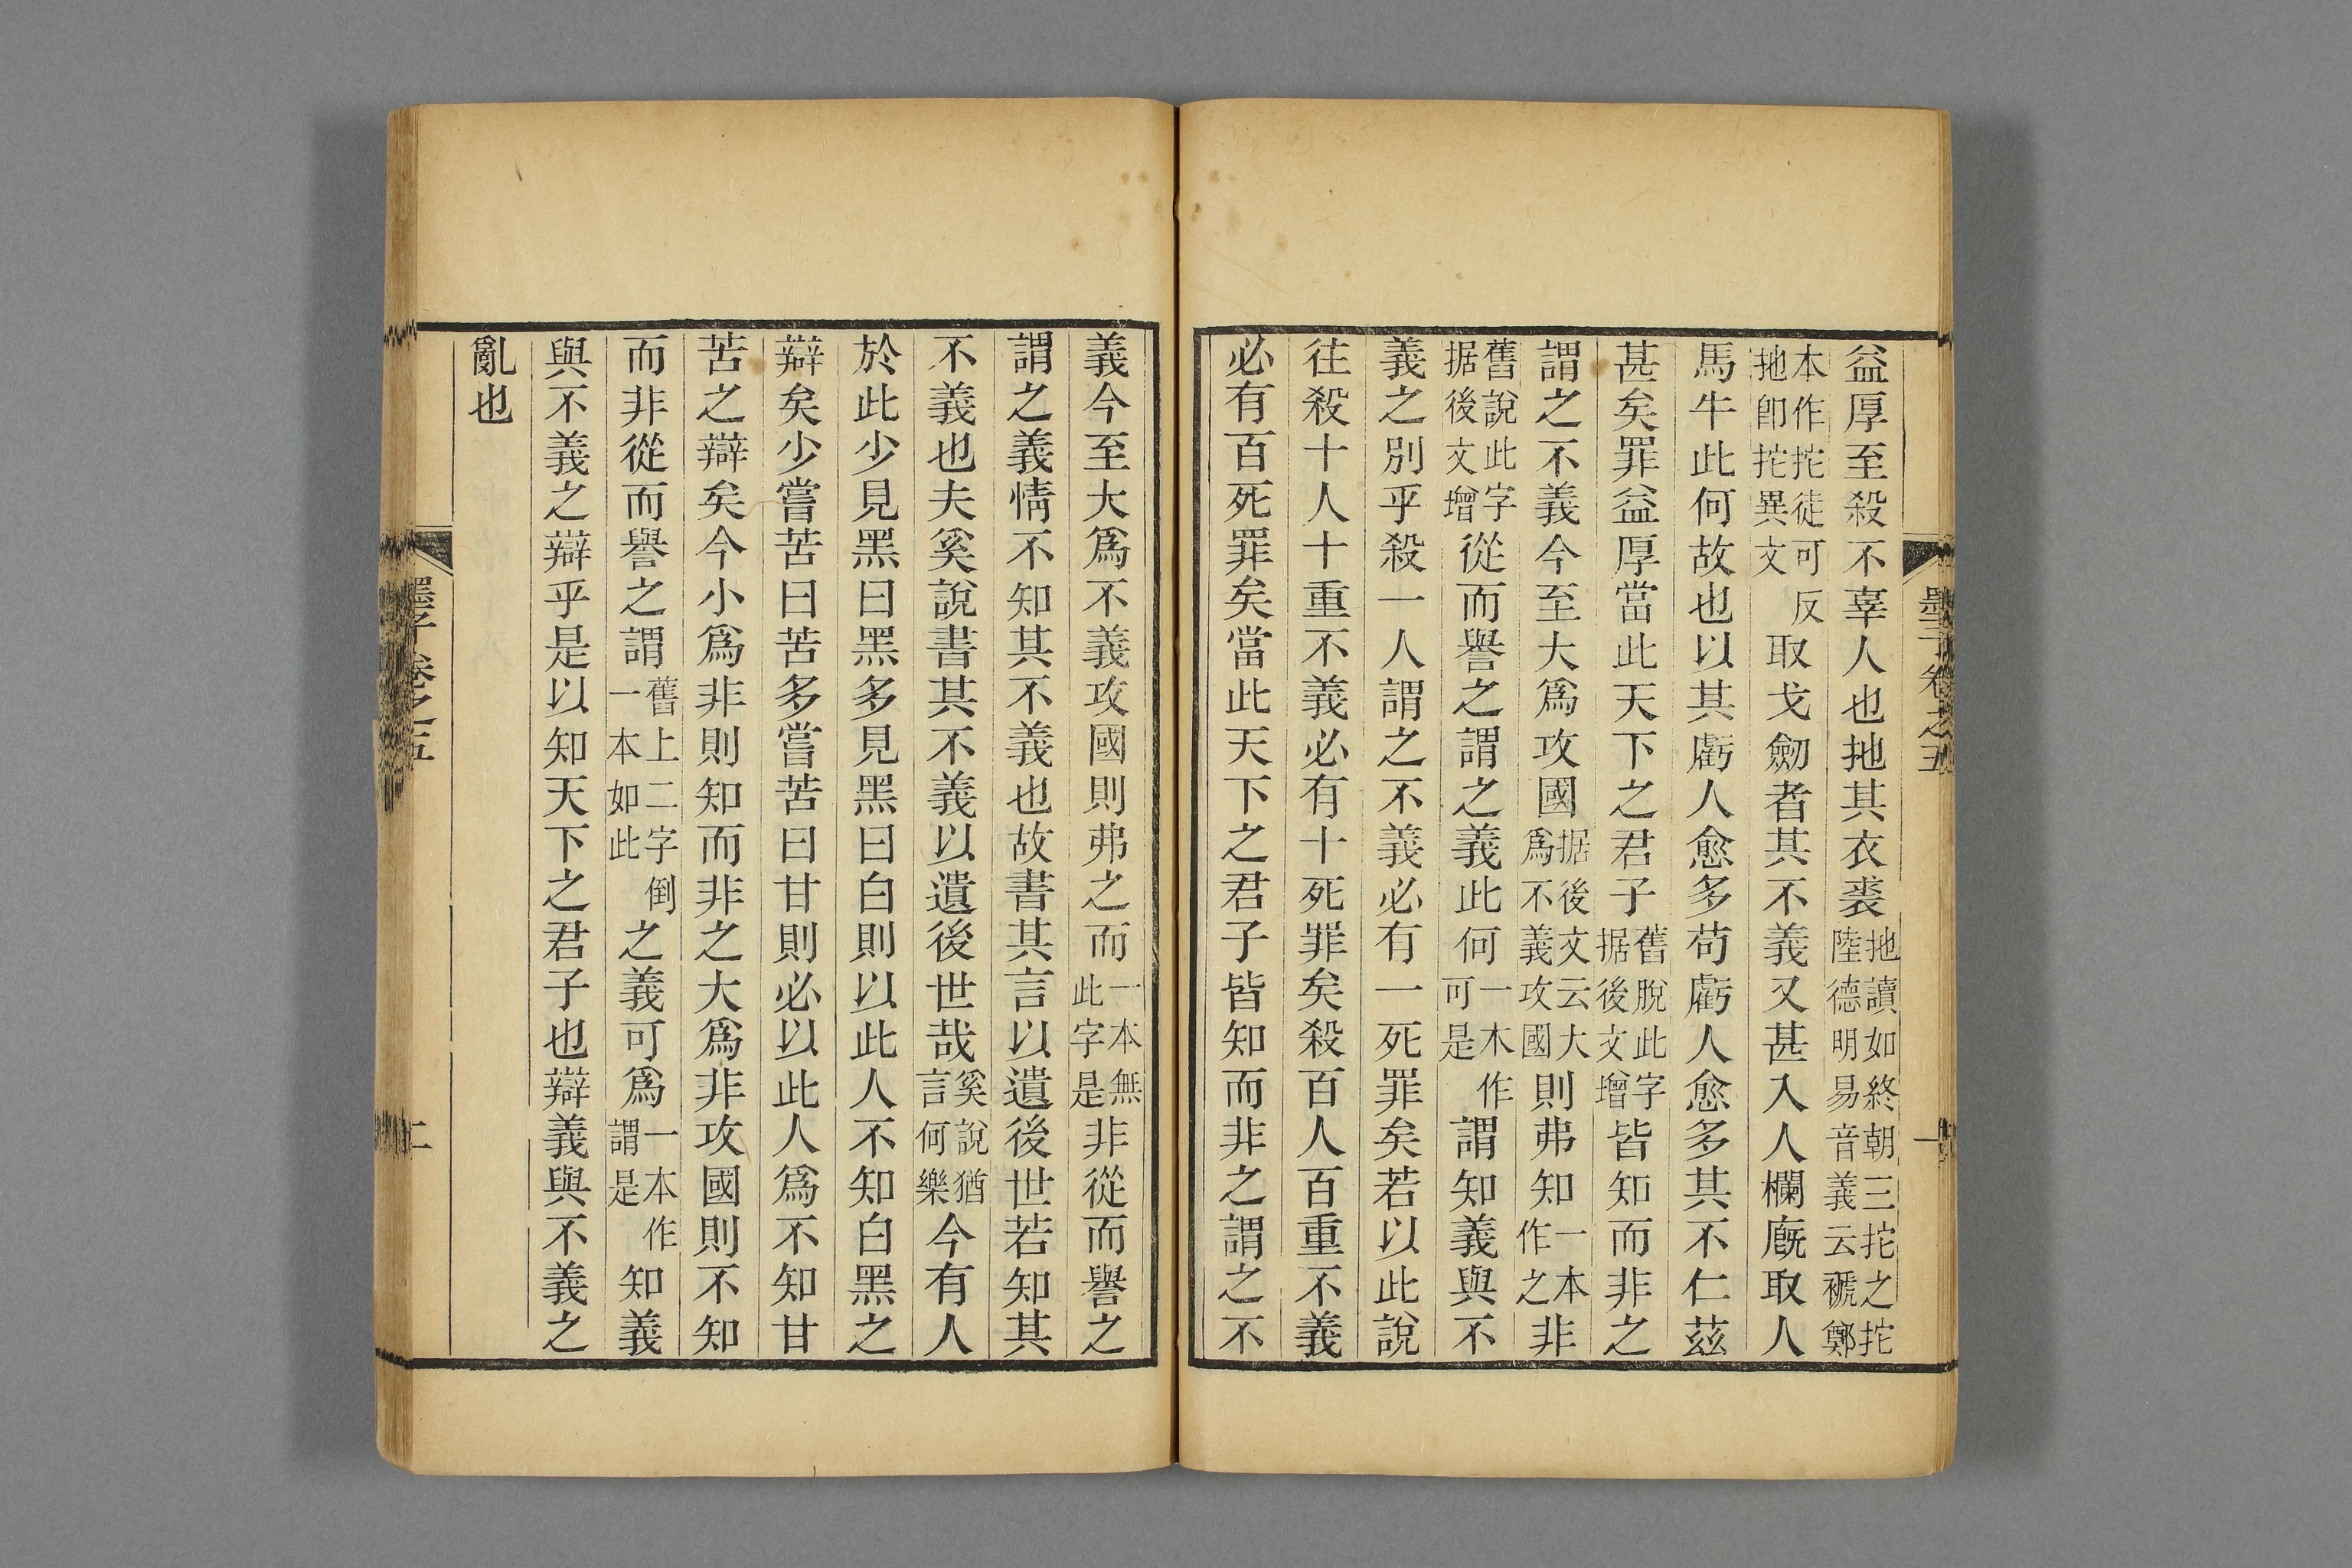 墨子卷之五
一
益厚至殺不辜人也扡其衣裘扡讀如終朝三拕之拕陸德明易音義云褫鄭
本作拕徒可反扡卽拕異文取戈劒者其不義又甚入人欄廐取人
馬牛此何故也以其虧人愈多苟虧人愈多其不仁茲
甚矣罪益厚當此天下之君子舊脫此字据後文增皆知而非之
謂之不義今至大爲攻國据後文云大爲不義攻國則弗知一本作之非
舊說此字据後文增從而譽之謂之義此何一木作可是謂知義與不
義之別乎殺一人謂之不義必有一死罪矣若以此說
往殺十人十重不義必有十死罪矣殺百人百重不義
必有百死罪矣當此天下之君子皆知而非之謂之不
義今至大爲不義攻國則弗之而一本無此字是非從而譽之
謂之義情不知其不義也故書其言以遺後世若知其
不義也夫奚說書其不義以遺後世哉奚說猶言何樂今有人
於此少見黑曰黑多見黑曰白則以此人不知白黑之
辯矣少嘗苦曰苦多嘗苦曰甘則必以此人爲不知甘
苦之辯矣今小爲非則知而非之大爲非攻國則不知
而非從而譽之謂舊上二字倒一本如此之義可爲一本作謂是知義
與不義之辯乎是以知天下之君子也辯義與不義之
亂也
墨子卷之五
二